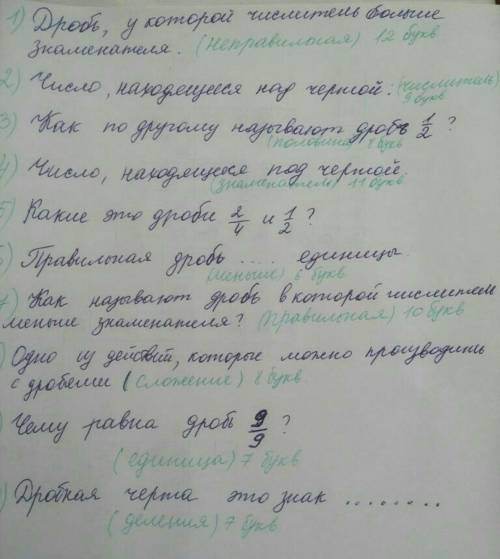 1) Дробь, у которой числитель больше
знаменателя. (неправильная) 12 букв
2) Число, находящееся над чертой. (числитель)
9 букв
3) Как по другому называют дробь 1/2 ?
(половина) 8 букв
4) Число, находящееся под чертой.
(знаменатель) 11 букв
5) Какие это дроби 2/4 и 1/2 ?
) Правильная дробь .... единицы.
(меньше) 6 букв
7) Как называют дробь в которой числителем
меньше знаменателя? (правильная) 10 букв
) Одно из действий, которые можно производить
с дробями (сложение) 8 букв
) Чему равна дробь 9/9 ?
(единица) 7 букв
) Дробная черта это знак ........
(деления) 7 букв